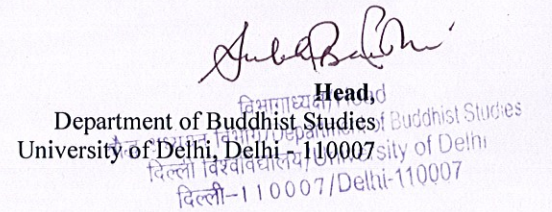 Head,
Department of Buddhist Studies
University of Delhi, Delhi - 110007
विभागाध्यक्ष/Head
बौद्ध अध्ययन विभाग/Department of Buddhist Studies
दिल्ली विश्वविद्यालय/University of Delhi
दिल्ली-110007/Delhi-110007